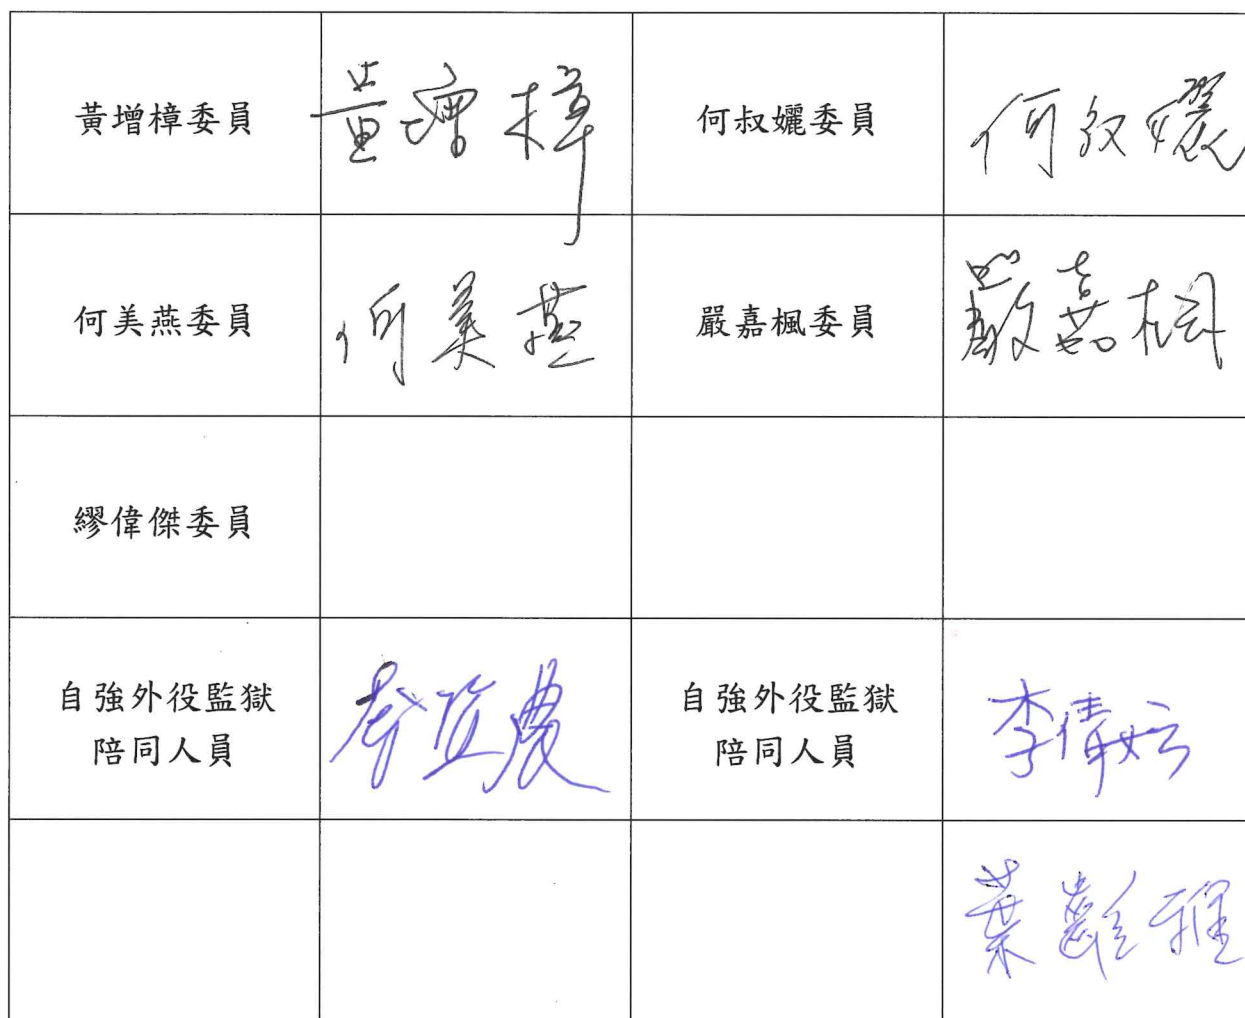 黃增樟委員
黃增樟
何叔孋委員
何叔孋
何美燕委員
何美燕
嚴嘉楓委員
嚴嘉楓
繆偉傑委員
自強外役監獄
陪同人員
自強外役監獄
陪同人員
李倩妘
葉 雅